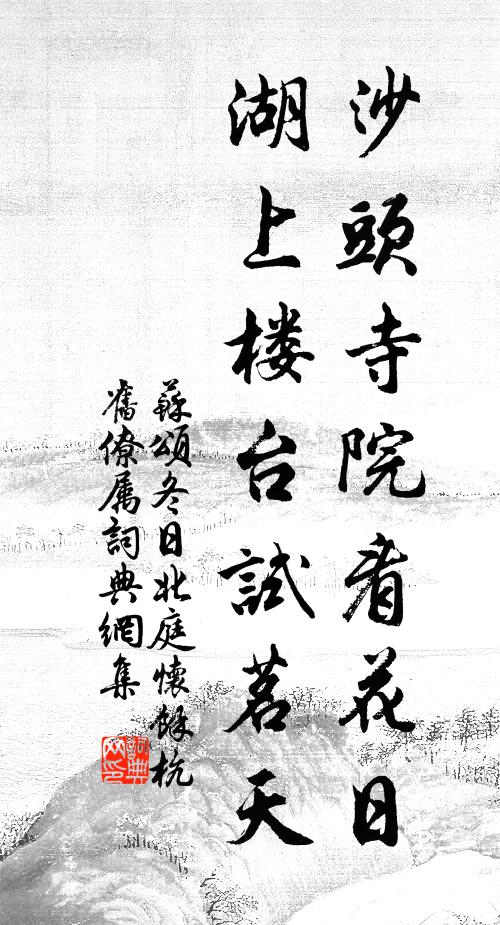 沙頭寺院看花日
湖上楼台試茗天
蘇頌冬日北庭懷餘杭
舊僚属詞典網集